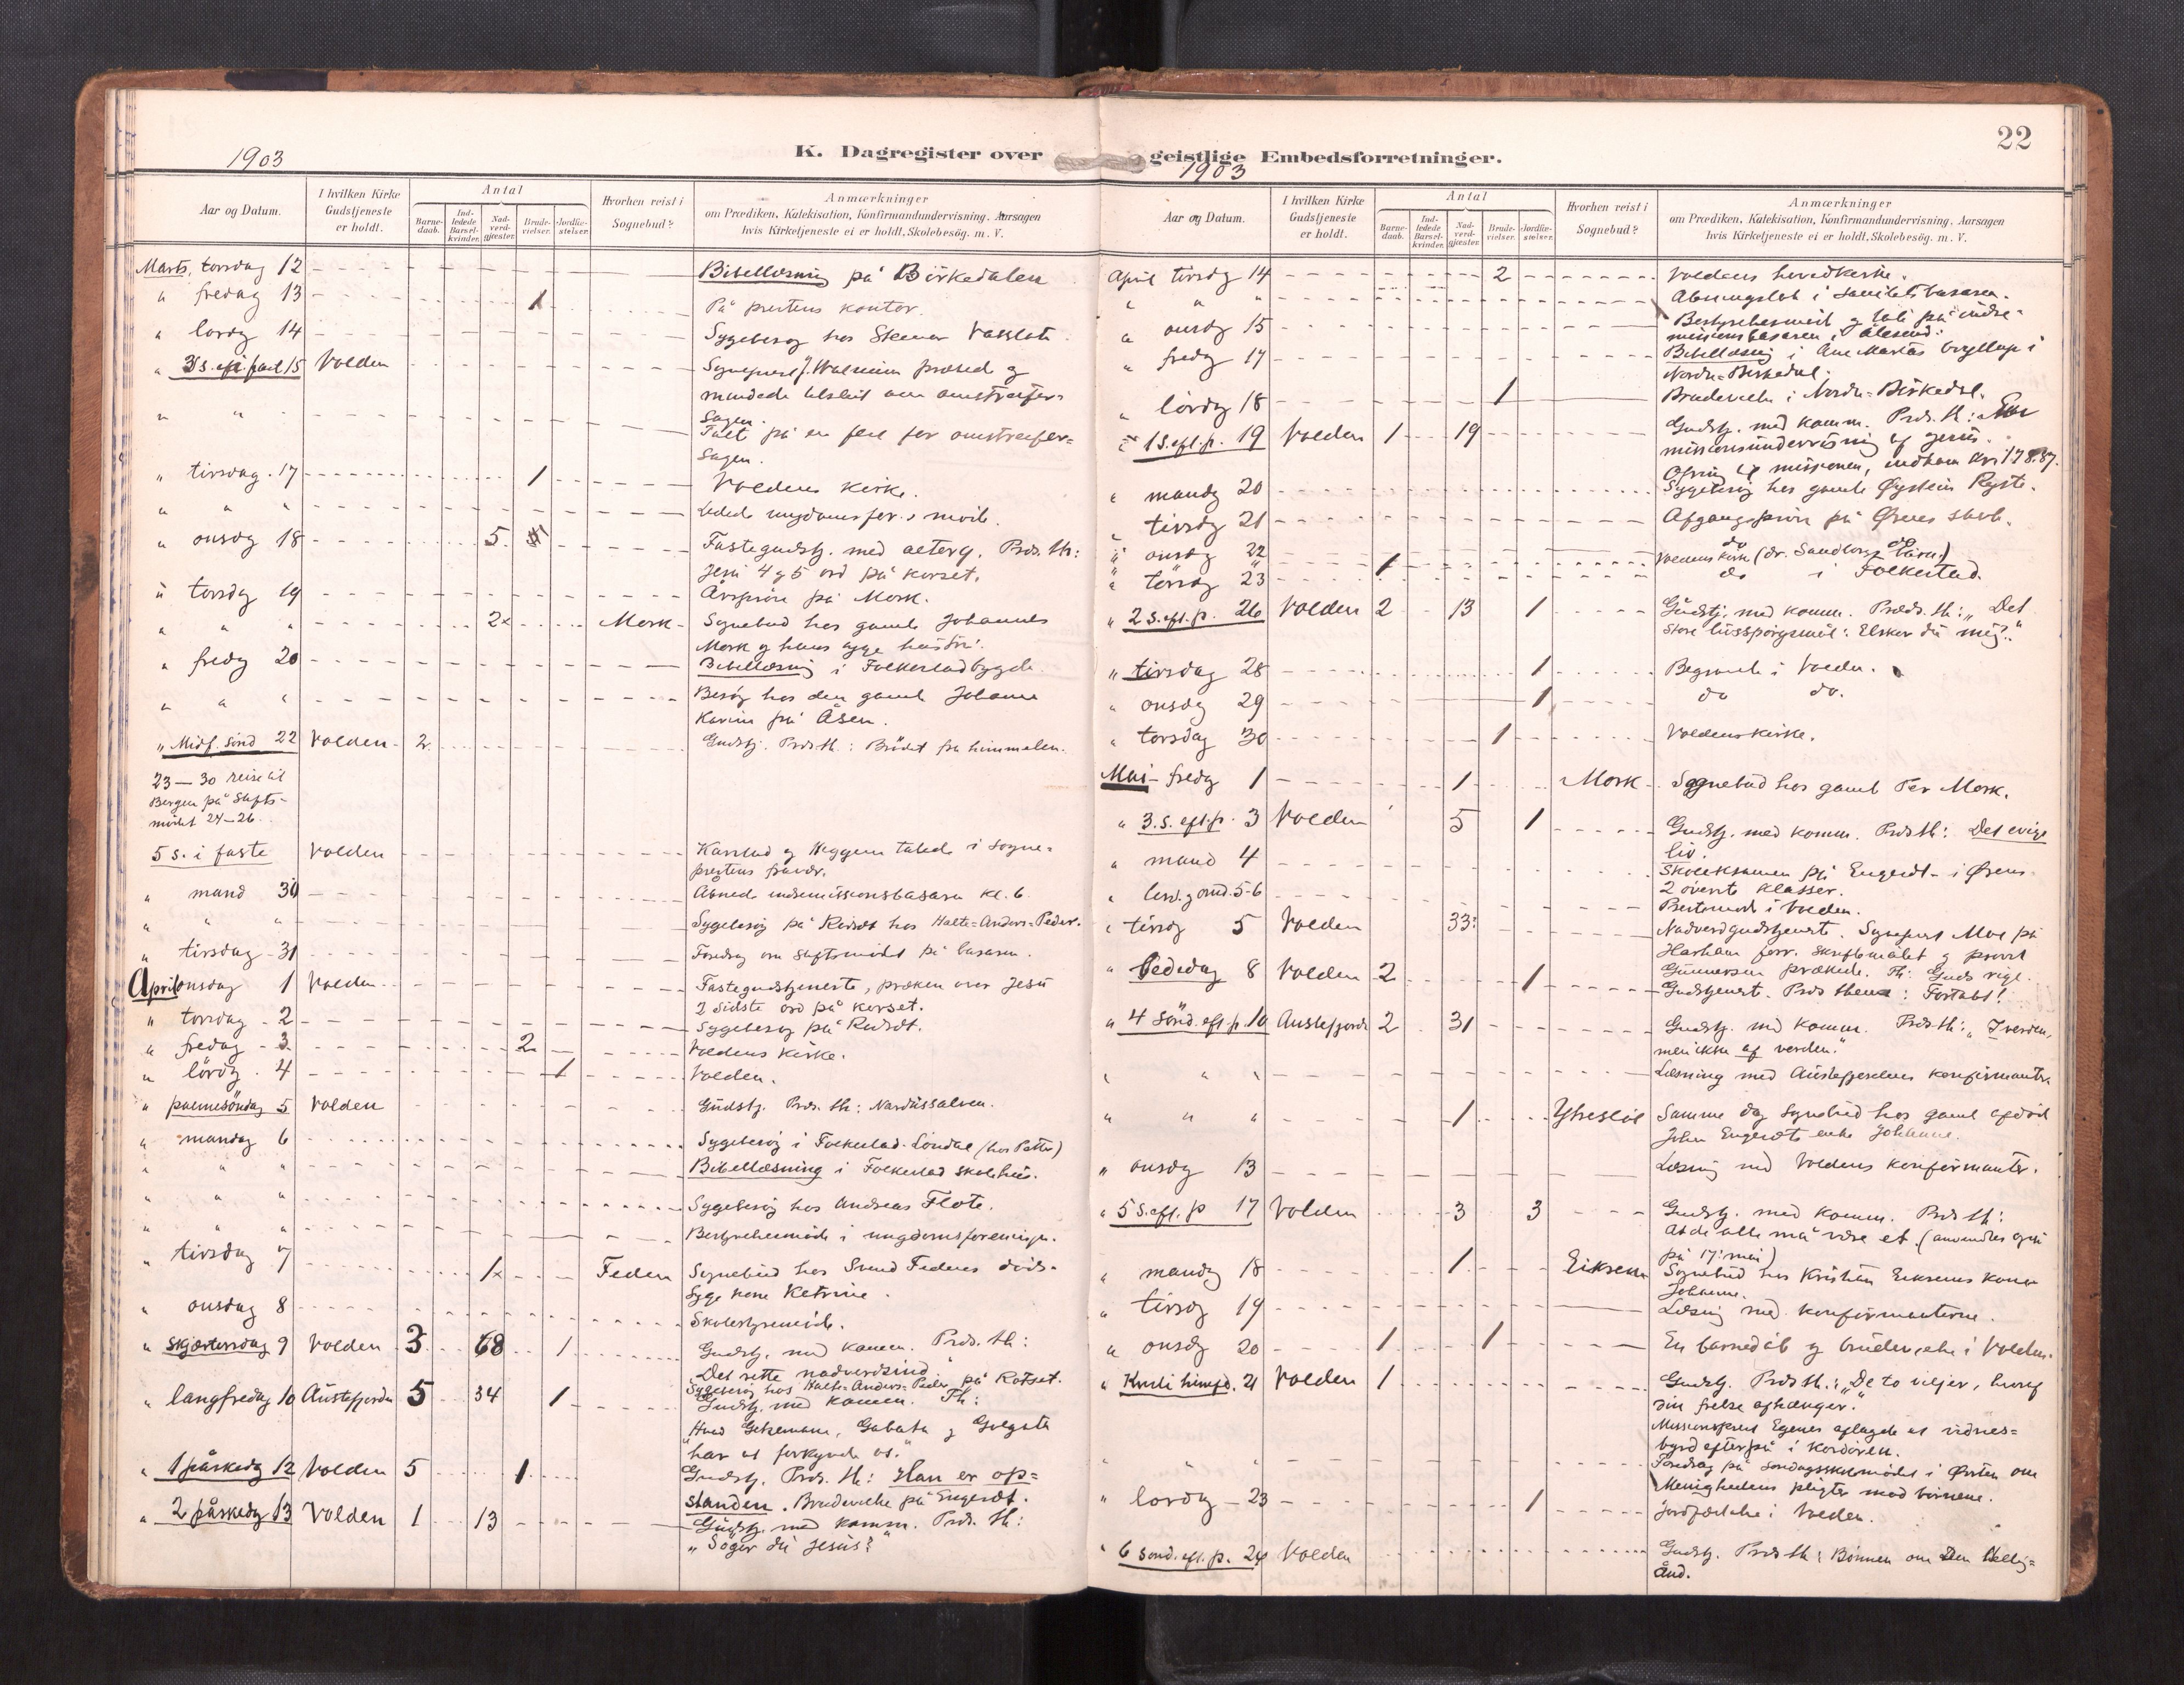 22
K. Dagregister over geistlige Embedsforretninger.
1903
Aar og Datum. I hvilken Kirke Gudstjeneste er holdt. Antal Barne-daab. Ind-ledede Barsel-kvinder. Nad-verd-gjæster. Brude-vielser. Jordfæ-stelser. Hvorhen reist i Sognebud? Anmærkninger om Prædiken, Katekisation, Konfirmandundervisning, Aarsagen hvis Kirketjeneste ei er holdt, Skolebesög. m. V.
Marts, torsdag 12 Bibellæsning på Birkedalen
" fredag 13 1 På prestens kontor.
" lördg 14 Sygebesög hos
" 3 s. efi. fast 15 Volden Sognepræst præked og
" "
sagen.
Talt på en fest for
sagen.
" tirsdag 17 1 Voldens kirke.
" " " Ledede ungdomsfor.s möde.
" onsdg 18 5 Fastegudstj. med alterg. Præd. th:
Jesu 4 og 5 ord på korset.
" torsdg 19 Årspröve på Mork.
" " " 2x Mork Sognebud hos gamle Johannes
Mork og hans syge hustru.
" fredg 20 Bibellæsning i Folkestadbygde.
" " " Besög hos den gamle Johanne
Karine på Åsen.
" Midf. sönd 22 Volden 2 Gudstj. Præd. th.: Brödet fra himmelen.
23 – 30 reise til
Bergen på stifts-
mödet 24–26.
5 s. i faste Volden Karstad og Heggen talede i sogne-
prestens fravær.
" mand 30 Åbnede indremissionsbasaren kl. 6
" " " Sygebesög på Reidst hos Halte-Anders-Peder.
" tirsdag 31 Foredrag om stiftsmödet på basaren.
April onsdag 1 Volden Fastegudstjeneste, præken over Jesu
2 sidste ord på korset.
" torsdag 2 Sygebesög på Reidst.
" fredag 3 2 Voldens kirke.
" lördg 4 1 Volden.
" palmesöndag 5 Volden Gudstj. Præd. th: Nardussalven.
" mandag 6 Sygebesög i Folkestad-Löndal (hos Petter)
" " " Bibellæsning i Folkestad skolehus.
" " " Sygebesög hos Andreas Flote.
" " " Bestyrelsesmöde i ungdomsforeningen.
" tirsdag 7 1x Feden Sognebud hos Svend Fedens döds-
syge kone Katrine.
" onsdag 8 Skolestyremöde.
" skjærtorsdag 9 Volden 3 68 1 Gudstj. med komm. Præd. th:
Det rette nadverdsind
Sygebesög hos Halte-Anders-Peder på Rotset.
" langfredag 10 Austefjorden 5 34 1 Gudstj. med komm. Th:
"Hvad Getsemane, Gabata og Golgata
har at forkynde os."
" 1 påskedg 12 Volden 5 1 Gudstj. Præd. th: Han er op-
standen. Brudevielse på Engeset.
" 2 påskedg 13 Volden 1 13 Gudstj. med komm. Præd. th:
"Söger du Jesus?"
1903
Aar og Datum. I hvilken Kirke Gudstjeneste er holdt. Antal Barne-daab. Ind-ledede Barsel-kvinder. Nad-verd-gjæster. Brude-vielser. Jordfæ-stelser. Hvorhen reist i Sognebud? Anmærkninger om Prædiken, Katekisation, Konfirmandundervisning, Aarsagen hvis Kirketjeneste ei er holdt, Skolebesög. m. V.
April tirsdg 14 2 Voldens hovedkirke.
" " " Åbningstale i sanitetsbasaren.
" onsdg 15 Bestyrelsesmöde og tale på indre-
missionsbasaren i Ålesund.
" fredg 17 Bibellæsning i Ane Martas bryllup i
Nordre-Birkedal.
" lördg 18 1 Brudevielse i Nordre-Birkedal.
" 1 s. eft. p. 19 Volden 1 19 Gudstj. med komm. Præd. th:
missionsundervisning af Jesus.
Ofring til missionen, indkom kr. 178.87.
" mandg 20 Sygebesög hos gamle Øystein Ryste.
" tirsdg 21 Afgangspröve på Ørens skole.
" onsdg 22 1 Voldens kirke (dr. Sandbergs barn.)
" torsdg 23 do i Folkestad.
" 2 s. eft. p. 26 Volden 2 13 1 Gudstj. med komm. Præd. th: "Det
store livsspörgsmål: Elsker du mig?"
" tirsdag 28 1 Begravelse i Volden.
" onsdg 29 1 do do.
" torsdag 30 1 Voldens kirke.
Mai fredg 1 1 Mork Sognebud hos gamle Per Mork.
" 3. s. eft. p. 3 Volden 5 1 Gudstj. med komm. Præd. th: Det evige
liv.
" mand 4 Skoleksamen på Engeset i Ørens
2 øverste klasser.
" tirsd. og onsd. 5-6 Prestemöde i Volden.
" tirsdg 5 Volden 33 Nadverdgudstjeneste. Sognepræst Moe på
Harham forr. skriftemålet og provst
Gunnersen prækede. Th: Guds rige.
" Bededag 8 Volden 2 1 Gudstjeneste. Præd. thema: Fortabt!
" 4 sönd. eft. p. 10 Austefjorden 2 31 Gudstj. med komm. Præd. th: "I verden,
men ikke af verden."
" " " Læsning med Austefjordens konfirmanter.
" " " 1 Ytrestöl Samme dag sognebud hos gamle
John Engesets enke Johanne.
" onsdg 13 Læsning med Voldens konfirmanter.
" 5 s. eft. p 17 Volden 3 3 Gudstj. med komm. Præd. th:
At de alle må være et. (anvendtes også
på 17. mai)
" mandg 18 1 Eiksen Sognebud hos Kristian Eiksens kone
Johanne.
" tirsdg 19 Læsning med konfirmanterne.
" onsdg 20 1 1 En barnedåb og brudevielse i Volden.
" Kristi himfd. 21 Volden 1 Gudstj. Præd. th.: "De to viljer, hvoraf
din frelse afhænger."
Missionsprest Egenes aflagde et vidnes-
byrd efterpå i kordören.
" " " Foredrag på söndagsskolemödet i Ørsten om
Menighedens pligter mod börnene.
" lördg 23 1 Jordfæstelse i Volden.
" 6 sönd. eft. p. 24 Volden Gudstj. Præd. th: Bönnen om Den Hellig-
ånd.